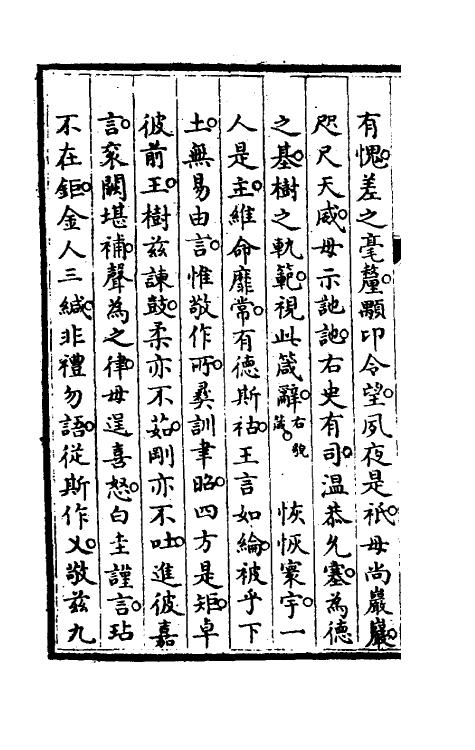 有愧差之毫釐顒卬令望夙夜是祇毋尚巖巖
咫尺天威毋示訑訑右史有司温恭允塞為德
之基樹之軌範視此箴辭右貌箴 恢恢寰宇一
人是主維命靡常有德斯祜王言如綸被乎下
土無易由言惟敬作所彞訓聿昭四方是矩卓
彼前王樹兹諫鼓柔亦不茹剛亦不吐進彼嘉
言衮闕堪補聲為之律毋逞喜怒白圭謹言玷
不在鉅金人三緘非禮勿語從斯作乂敬兹九